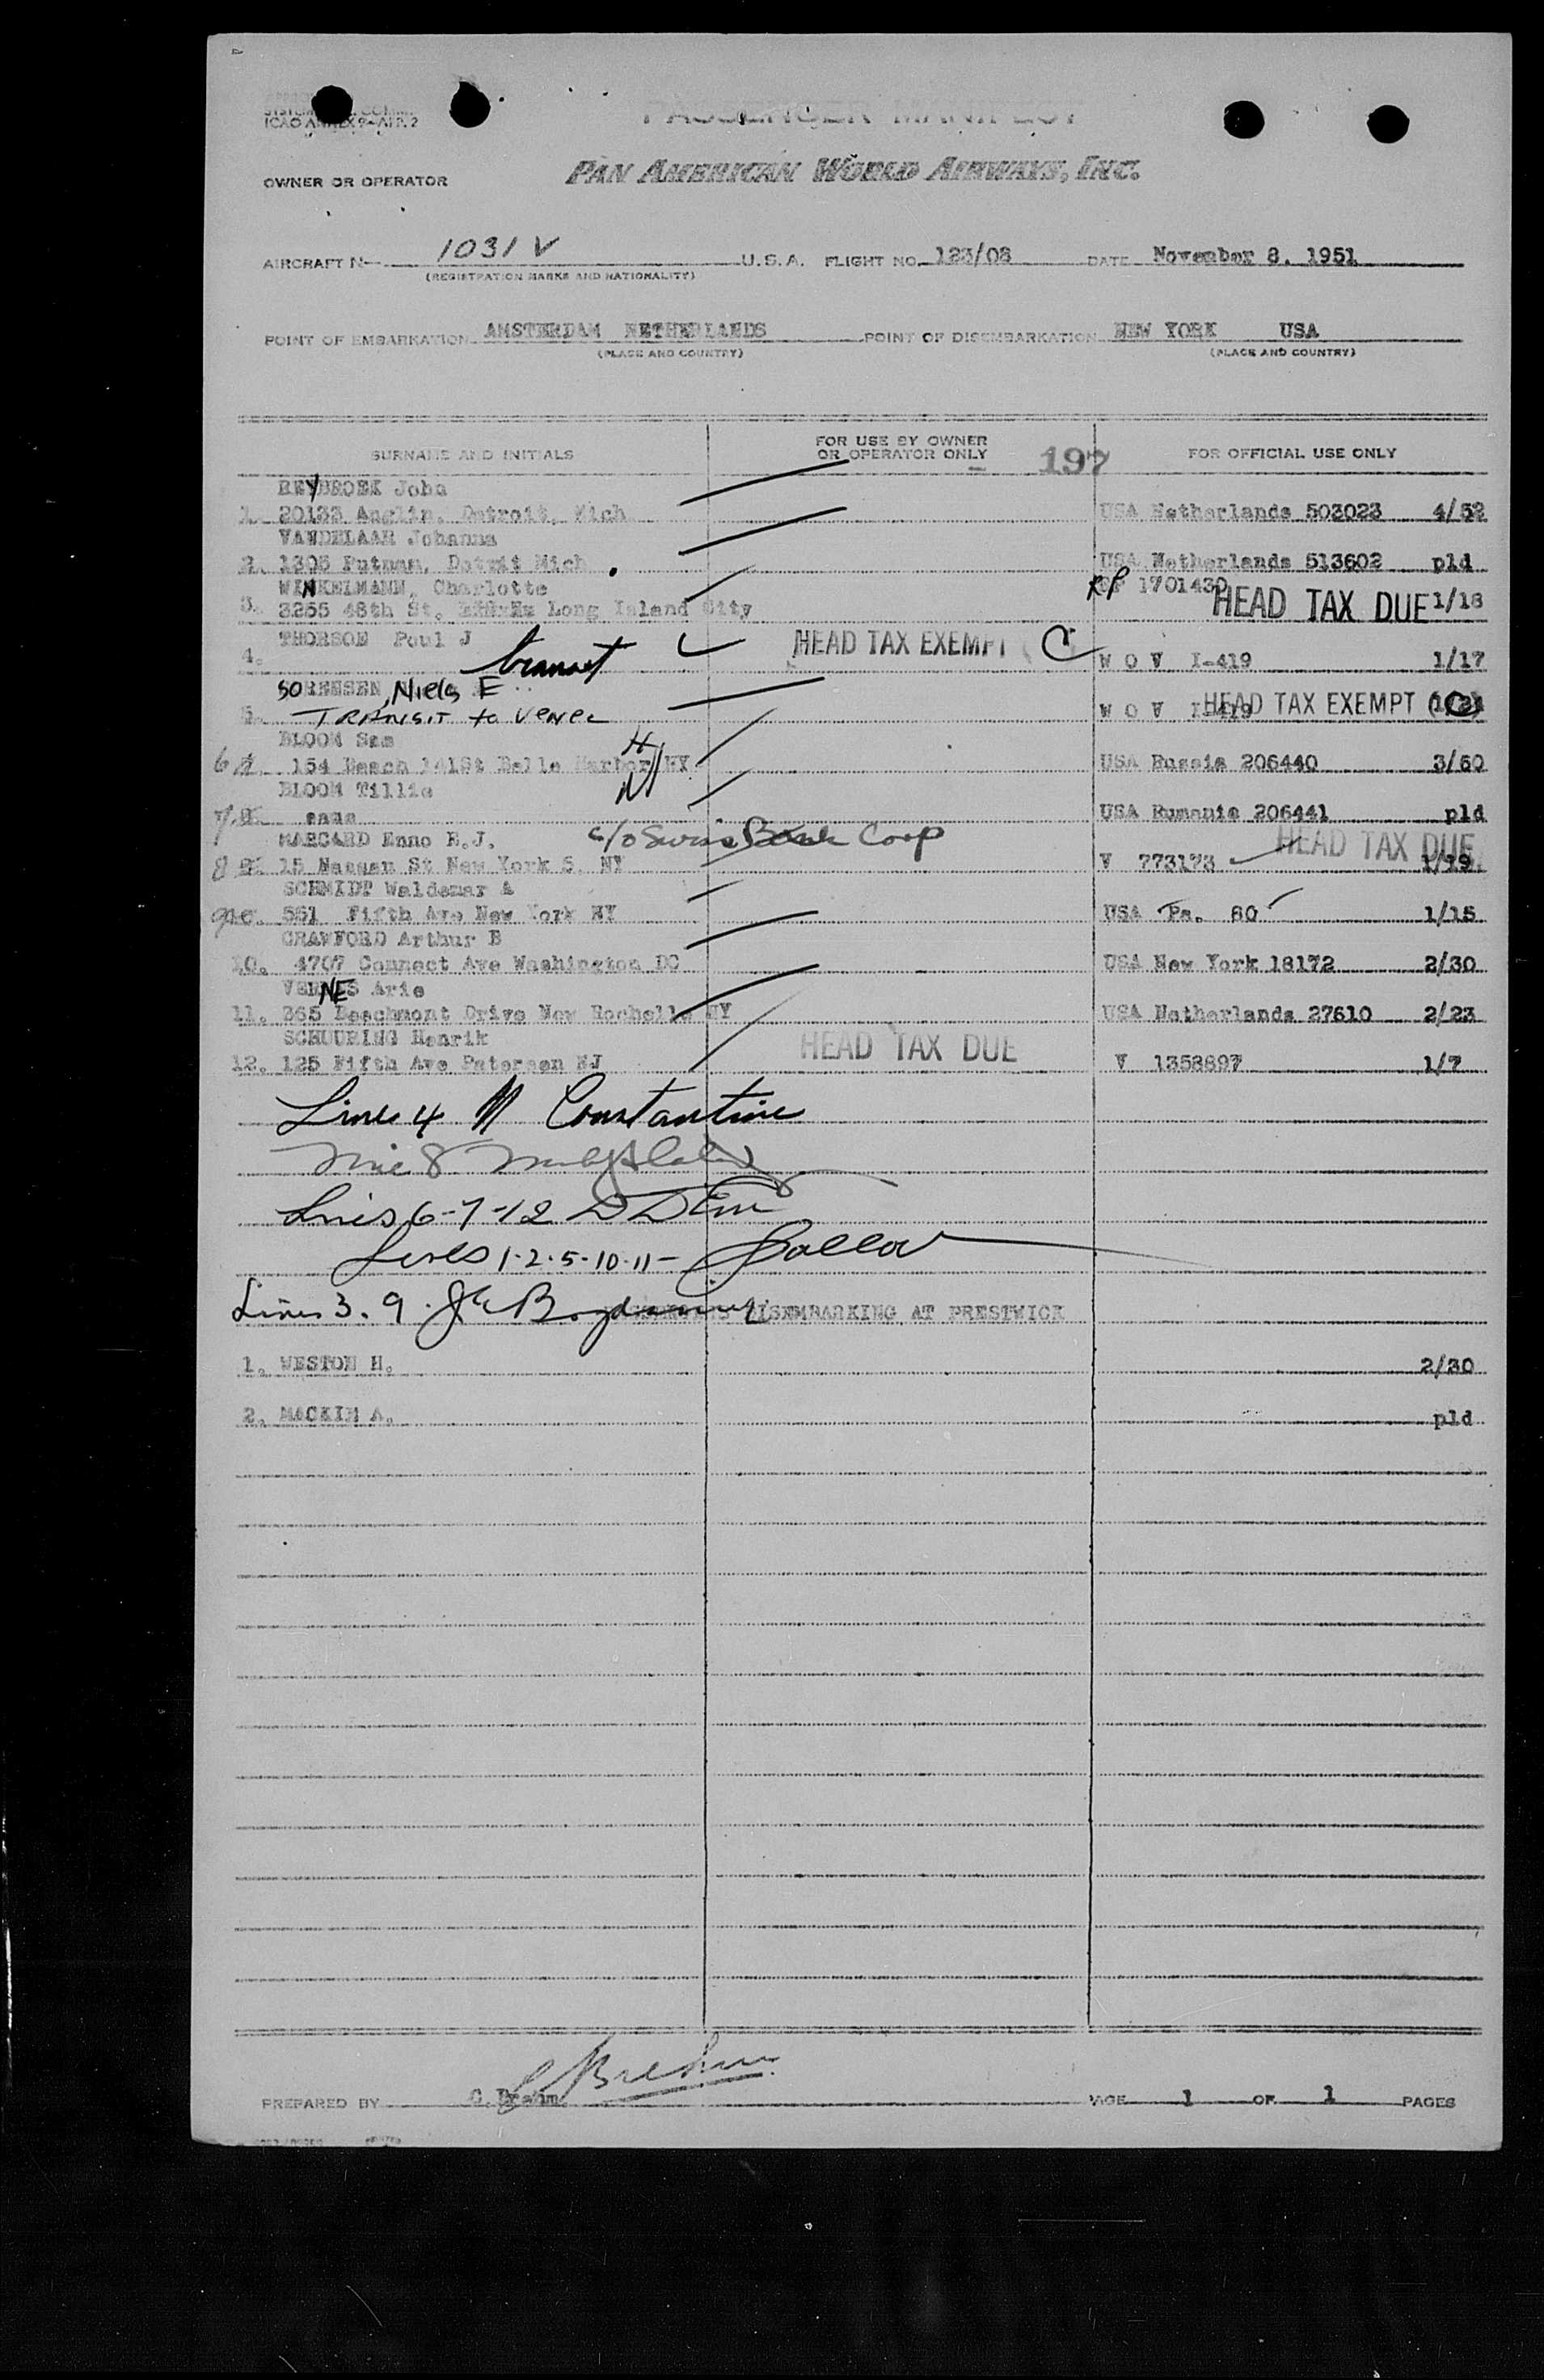 ICAO ANNEX 9-APP. 2
PASSENGER MANIFEST
OWNER OR OPERATOR PAN AMERICAN WORLD AIRWAYS, INC.
AIRCRAFT N- 1031 V U.S.A. FLIGHT NO. 123/08 DATE November 8. 1951
(REGISTRATION MARKS AND NATIONALITY)
POINT OF EMBARKATION AMSTERDAM NETHERLANDS POINT OF DISEMBARKATION NEW YORK USA
(PLACE AND COUNTRY) (PLACE AND COUNTRY)
SURNAME AND INITIALS FOR USE BY OWNER OR OPERATOR ONLY 197 FOR OFFICIAL USE ONLY
REYBROEK John
1. 20133 Anglin. Detroit, Mich USA Netherlands 503023 4/52
VANDELAAR Johanna
2. 1305 Putnam, Detroit Mich USA Netherlands 513602 pld
WINKELMANN, Charlotte RP 1701430
3. 3255 48th St. Long Island City HEAD TAX DUE 1/18
THORSON Poul J HEAD TAX EXEMPT C
4. transit W O V I-419 1/17
SORENSEN, Niels E
5. TRANSIT to Venez W O V I-419 HEAD TAX EXEMPT (C)
BLOOM Sam
6 154 Beach 141St Belle Harbor NY USA Russia 206440 3/60
BLOOM Tillie
7. same USA Rumania 206441 pld
MARCARD Enno R.J. c/o Swiss Bank Corp HEAD TAX DUE
8 15 Nassau St New York 5. NY V 773173 1/19
SCHMIDT Waldemar A
9 551 Fifth Ave New York NY USA Pa. 80 1/15
CRAWFORD Arthur B
10. 4707 Connect Ave Washington DC USA New York 18172 2/30
VERNES Arie
11. 365 Beechmont Drive New Rochelle NY USA Netherlands 27610 2/23
SCHUURING Henrik HEAD TAX DUE
12. 125 Fifth Ave Paterson NJ V 1358897 1/7
Line 4 M Constantine
Line 8
Lines 6-7-12
Lines 1-2-5-10-11-
Lines 3. 9. DISEMBARKING AT PRESTWICK
1. WESTON H. 2/30
2. MACKIM A. pld
PREPARED BY C. Brehm C Brehm PAGE 1 OF 1 PAGES